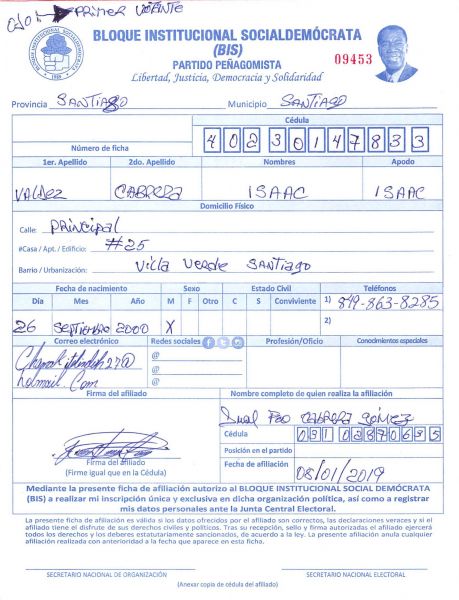 Ojo! PRIMER VOTANTE
BLOQUE INSTITUCIONAL SOCIALDEMÓCRATA
(BIS)
PARTIDO PEÑAGOMISTA
Libertad, Justicia, Democracia y Solidaridad
09453
Provincia SANTIAGO Municipio SANTIAGO
Cédula
Número de ficha 40230147833
1er. Apellido 2do. Apellido Nombres Apodo
VALDEZ CABRERA ISAAC ISAAC
Domicilio Físico
Calle: PRINCIPAL
#Casa / Apt. / Edificio: #25
Barrio / Urbanización: Villa Verde SANTIAGO
Fecha de nacimiento Sexo Estado Civil Teléfonos
Día Mes Año M F Otro C S Conviviente 1) 849-863-8285
26 SEPTIEMBRE 2000 X 2)
Correo electrónico Redes sociales Profesión/Oficio Conocimientos especiales
@
@
@
hotmail.Com
Firma del afiliado Nombre completo de quien realiza la afiliación
CABRERA GÓMEZ
Cédula 03103870635
Posición en el partido
Firma del afiliado
(Firme igual que en la Cédula)
Fecha de afiliación 08/01/2019
Mediante la presente ficha de afiliación autorizo al BLOQUE INSTITUCIONAL SOCIAL DEMÓCRATA
(BIS) a realizar mi inscripción única y exclusiva en dicha organización política, así como a registrar
mis datos personales ante la Junta Central Electoral.
La presente ficha de afiliación es válida si los datos ofrecidos por el afiliado son correctos, las declaraciones veraces y si el
afiliado tiene el disfrute de sus derechos civiles y políticos. Tras su recepción, sello y firma autorizadas el afiliado ejercerá
todos los derechos y los deberes estatutariamente sancionados, de acuerdo a la ley. La presente afiliación anula cualquier
afiliación realizada con anterioridad a la fecha que aparece en esta ficha.
SECRETARIO NACIONAL DE ORGANIZACIÓN SECRETARIO NACIONAL ELECTORAL
(Anexar copia de cédula del afiliado)